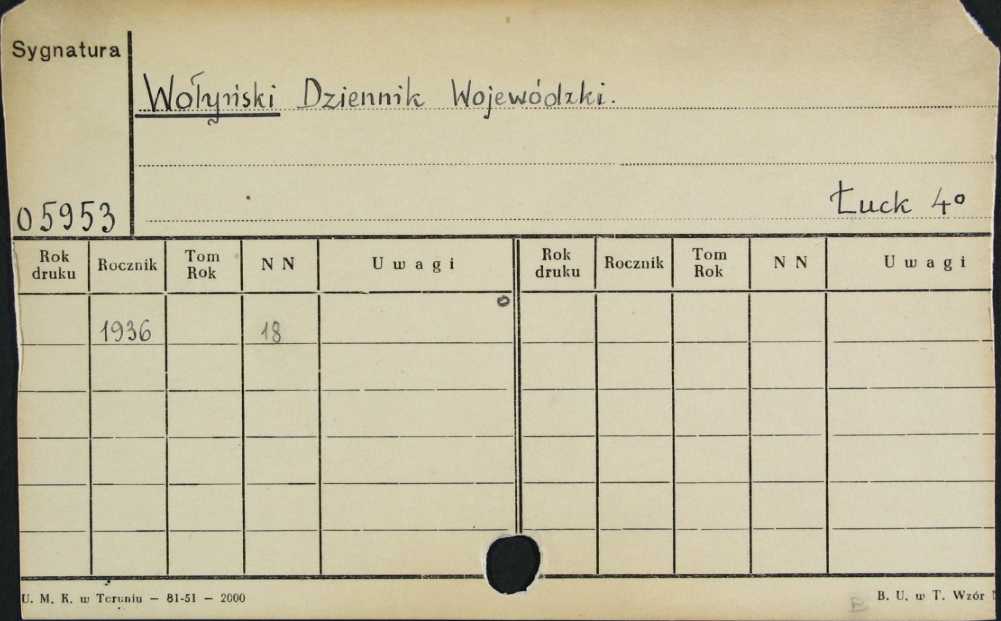 Sygnatura
Wołyński Dziennik Wojewódzki.
05953
Łuck 4°
Rok druku Rocznik Tom Rok N N Uwagi Rok druku Rocznik Tom Rok N N Uwagi
1936 18
U. M. K. w Toruniu — 81-51 — 2000
B. U. w T. Wzór
B